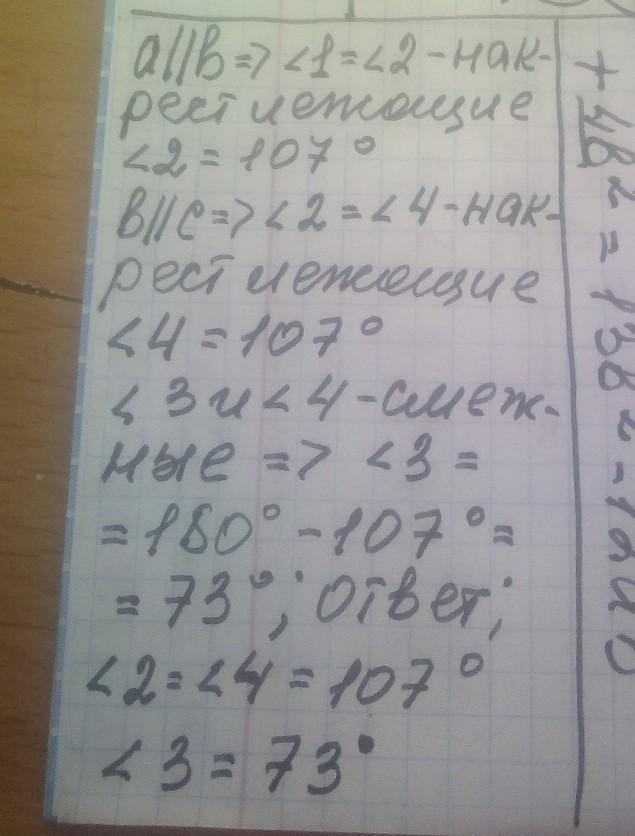 a||b => <1=<2 -нак-
рест лежащие
<2 = 107°
b||c => <2 = <4 -нак-
рест лежащие
<4 = 107°
<3 и <4 -смеж-
ные => <3 =
= 180° - 107° =
= 73°; Ответ;
<2 = <4 = 107°
<3 = 73°